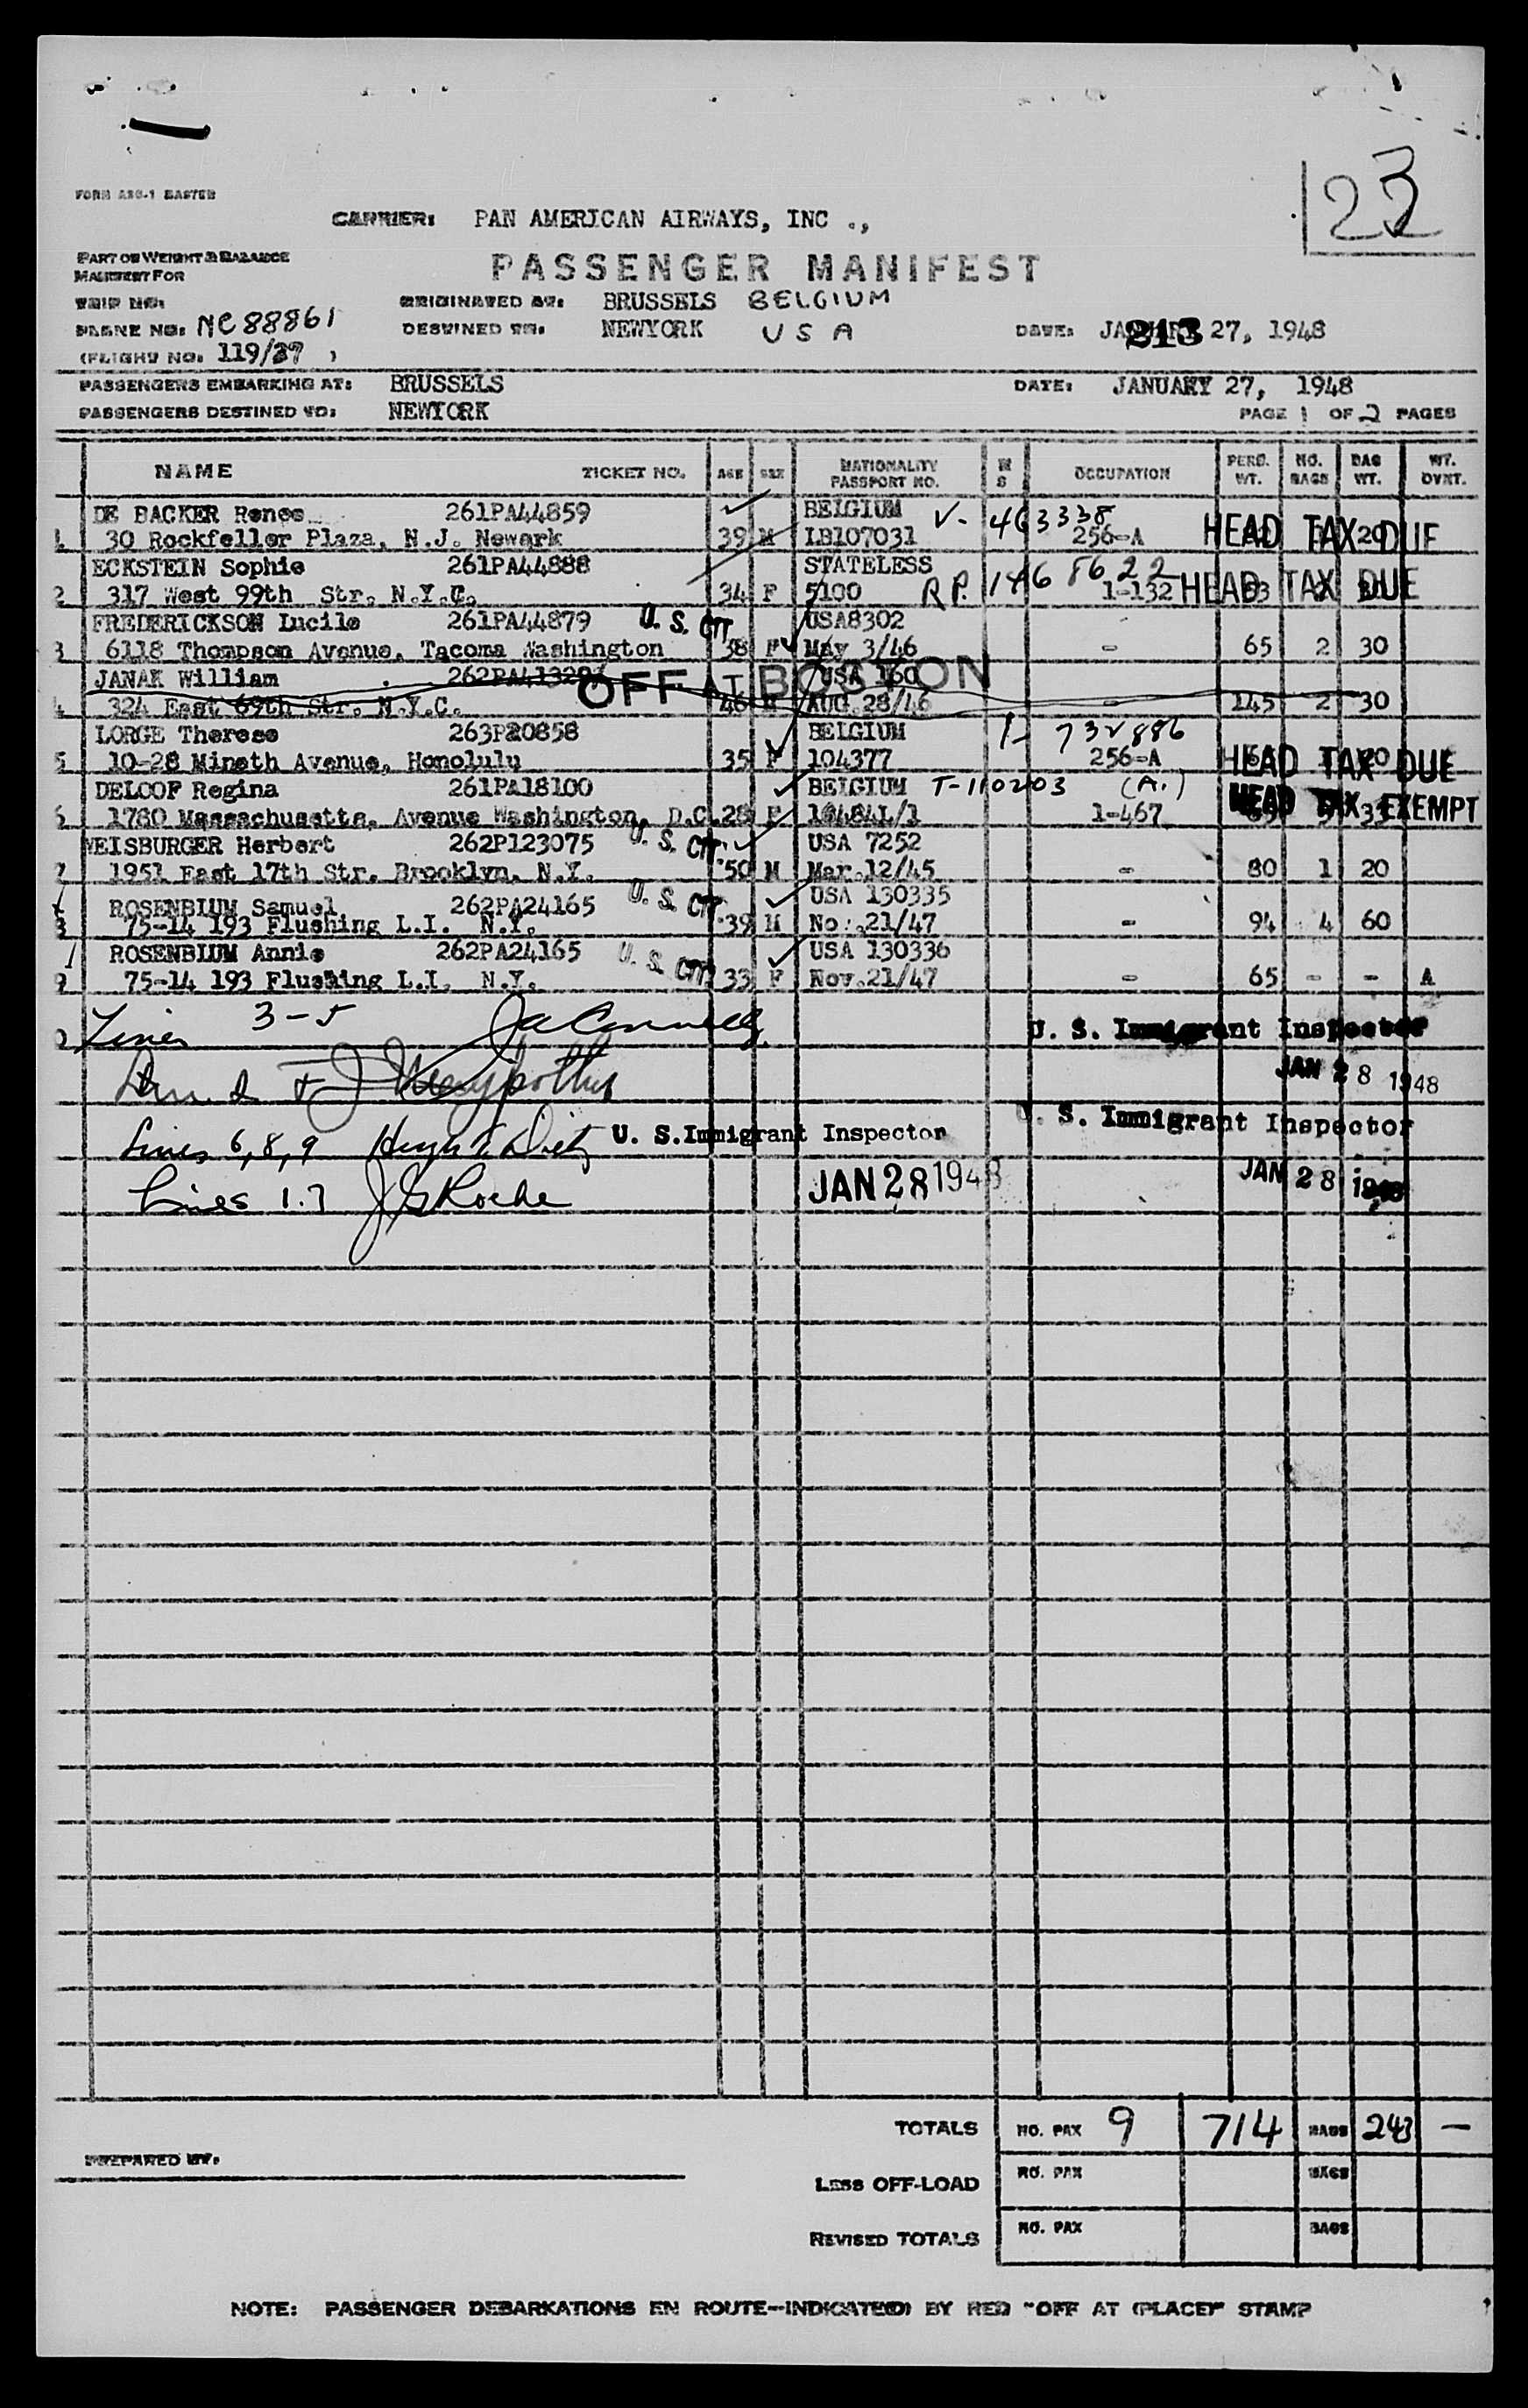 23
FORM ASG-1 EASTER
CARRIER: PAN AMERICAN AIRWAYS, INC .,
PART OF WEIGHT & BALANCE
MANIFEST FOR
PASSENGER MANIFEST
TRIP NO:
ORIGINATED AT: BRUSSELS BELGIUM
PLANE NO: NC88861
DESTINED TO: NEWYORK USA
DATE: JANUARY 27, 1948
213
(FLIGHT NO. 119/27 )
PASSENGERS EMBARKING AT: BRUSSELS DATE: JANUARY 27, 1948
PASSENGERS DESTINED TO: NEWYORK PAGE 1 OF 2 PAGES
NAME TICKET NO. AGE SEX NATIONALITY PASSPORT NO. M S OCCUPATION PERS. WT. NO. BAGS BAG WT. WT. OVNT.
DE BACKER Renee 261PA44859 BELGIUM V- 463338
1 30 Rockfeller Plaza, N.J. Newark 39 M LB107031 256-A 20 HEAD TAX DUE
ECKSTEIN Sophie 261PA44888 STATELESS
2 317 West 99th Str. N.Y.C. 34 F 5100 R.P. 1468622 1-132 HEAD TAX DUE
FREDERICKSON Lucile 261PA44879 U. S. CIT. USA8302
3 6118 Thompson Avenue, Tacoma Washington 38 F May 3/46 - 65 2 30
JANAK William OFF AT BOSTON USA 160
4 324 East 69th Str. N.Y.C. 46 M AUG.28/46 - 145 2 30
LORGE Therese 263P20858 BELGIUM 732886
5 10-28 Mineth Avenue, Honolulu 35 F 104377 256-A HEAD TAX DUE
DELOOF Regina 261PA18100 BELGIUM T-110203 (A.)
6 1780 Massachusetts, Avenue Washington, D.C. 28 F 1-467 HEAD TAX EXEMPT
WEISBURGER Herbert 262P123075 U. S. CIT. USA 7252
7 1951 East 17th Str. Brooklyn, N.Y. 50 M Mar.12/45 - 80 1 20
ROSENBLUM Samuel 262PA24165 U. S. CIT. USA 130335
8 75-14 193 Flushing L.I. N.Y. 39 M No:.21/47 - 94 4 60
ROSENBLUM Annie 262PA24165 U. S. CIT. USA 130336
9 75-14 193 Flushing L.I. N.Y. 33 F Nov.21/47 - 65 - - A
Lines 3-5
U. S. Immigrant Inspector
JAN 28 1948
Lines 6,8,9
U. S. Immigrant Inspector
U. S. Immigrant Inspector
Lines 1.7 JG Roche
JAN 28 1948
JAN 28 1948
TOTALS NO. PAX 9 714 BAGS 243 —
PREPARED BY:
LESS OFF-LOAD NO. PAX BAGS
REVISED TOTALS NO. PAX BAGS
NOTE: PASSENGER DEBARKATIONS EN ROUTE—INDICATE(D) BY RED "OFF AT (PLACE)" STAMP